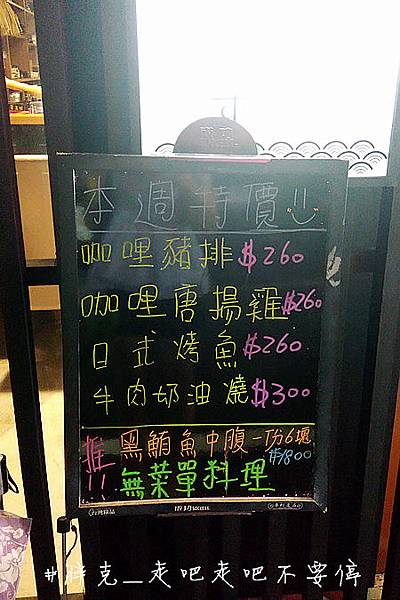 本週特價
咖哩豬排$260
咖哩唐揚雞$260
日式烤魚$260
牛肉奶油燒$300
推!! 黑鮪魚中腹一份6塊
$1800
無菜單料理
#胖克_走吧走吧不要停